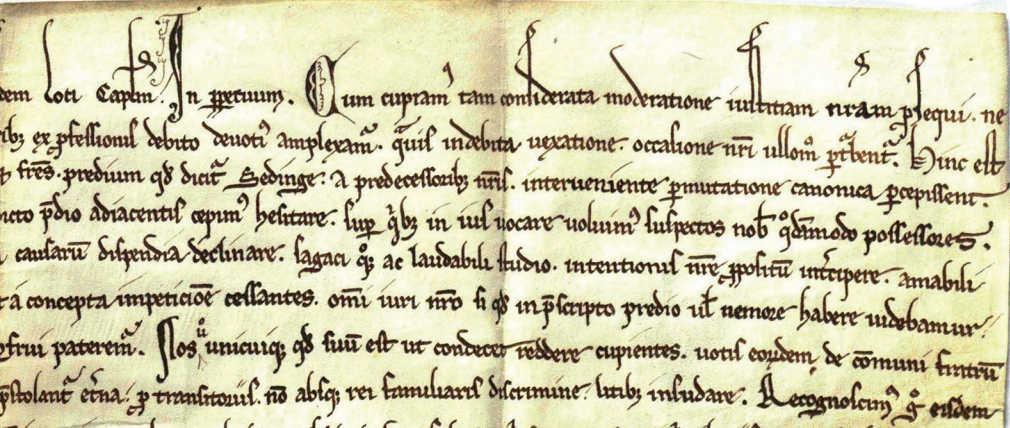 dem loci Capl'm. In ꝑpetuum. Cum cupiam' tam considerata moderatione iusticiam nr̄am ꝓsequi. ne
ribꝫ ex ꝓfessionis debito deuoti' amplexam'. q̈uis indebita uexatione. occasione nr̄i ullom' ꝑt'bent'. Hinc est
fr̄es. predium qd' dicit' Sedinge: a predecessoribꝫ nr̄is. interueniente ꝑmutatione canonica ꝑcepissent.
icto p̄dio adiacentis cepim' hesitare. suꝑ q'bꝫ in ius uocare uoluim' suspectos nob̄ qºdāmodo possessores.
causarū dispendia declinare. sagaci qºꝫ ac laudabili studio. intentionis nr̄e ꝓpositū int'cipere. amabili
t a concepta impeticiōe cessantes. om̄i iuri nr̄o si qd' in p̄scripto predio ul' nemore habere uidebamur.
frui paterem'. Nos ů unicuiqꝫ qd' suū est ut condecet reddere cupientes. uotis eorꝫdem de cōmuni fratrū
p̄stolant' et'na: ꝓ transitoriis. nō absqꝫ rei familiaris discrimine. litibꝫ insudare. Recognoscim' gº eisdem